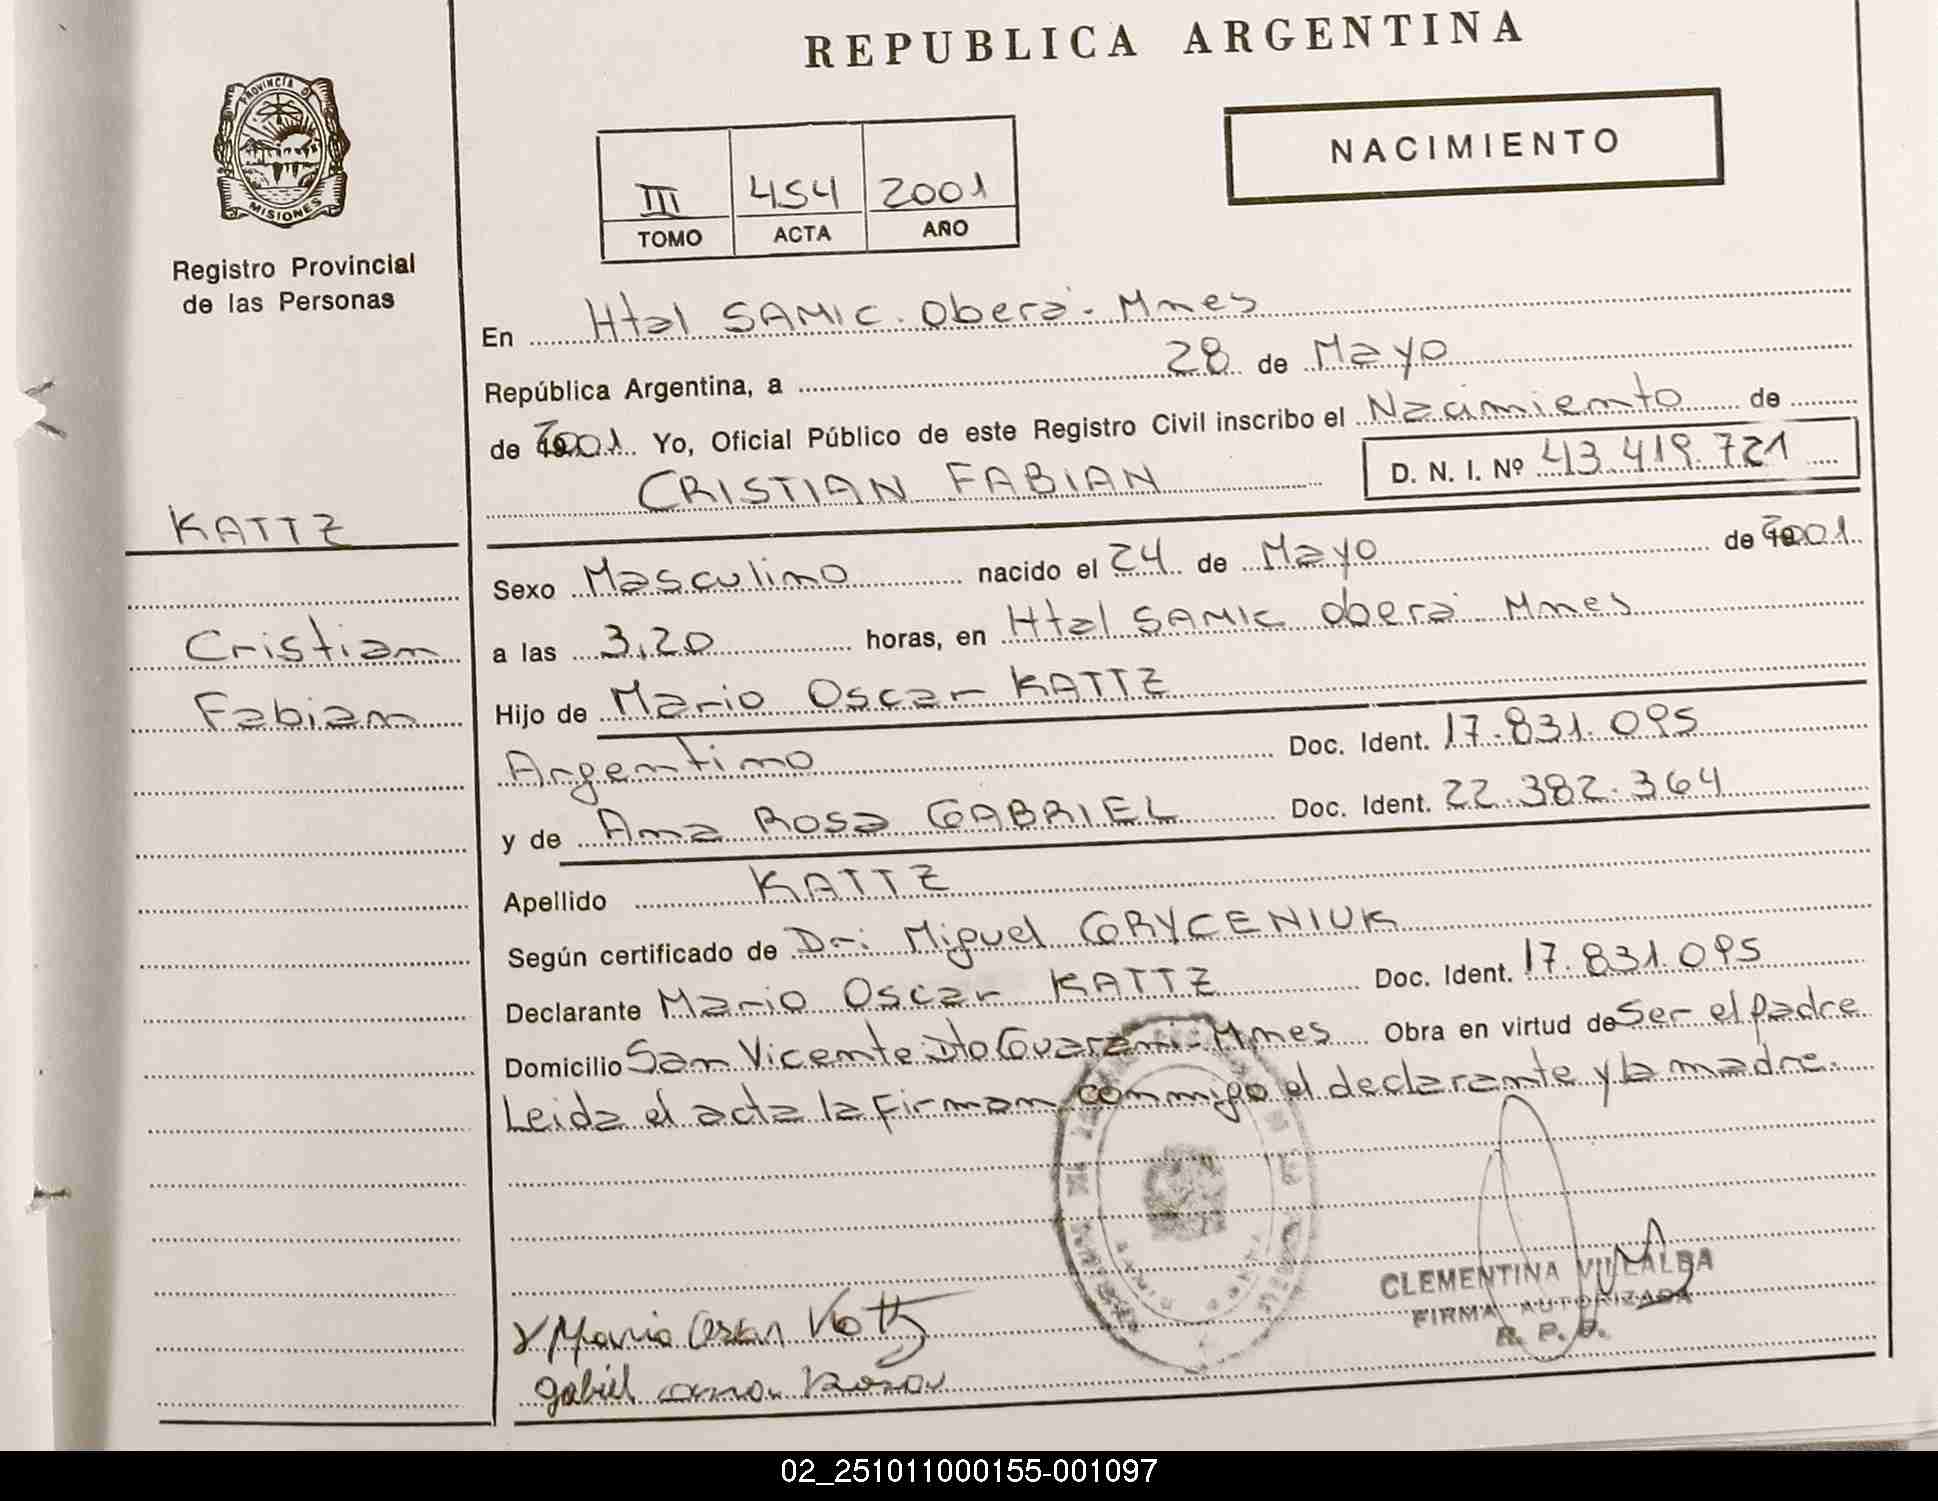 REPUBLICA ARGENTINA
PROVINCIA D
MISIONES
Registro Provincial
de las Personas
NACIMIENTO
III 454 2001
TOMO ACTA AÑO
En Htal SAMIC. Oberá. Mnes
República Argentina, a 28 de Mayo
de 2001. Yo, Oficial Público de este Registro Civil inscribo el Nacimiento de
CRISTIAN FABIAN D. N. I. Nº 43.419.721
KATTZ
Cristian
Fabian
Sexo Masculino nacido el 24 de Mayo de 2001.
a las 3,20 horas, en Htal SAMIC Oberá Mnes
Hijo de Mario Oscar KATTZ
Argentino Doc. Ident. 17.831.095
y de Ana Rosa GABRIEL Doc. Ident. 22.382.364
Apellido KATTZ
Según certificado de Dr: Miguel GRYCENIUK
Declarante Mario Oscar KATTZ Doc. Ident. 17.831.095
Domicilio San Vicente Dto Guaraní. Mnes Obra en virtud de Ser el padre
Leida el acta la firman conmigo el declarante y la madre.
CLEMENTINA VILLALBA
FIRMA AUTORIZADA
R. P. P.
Mario Oscar Kattz
gabriel ana Rosa
02_251011000155-001097